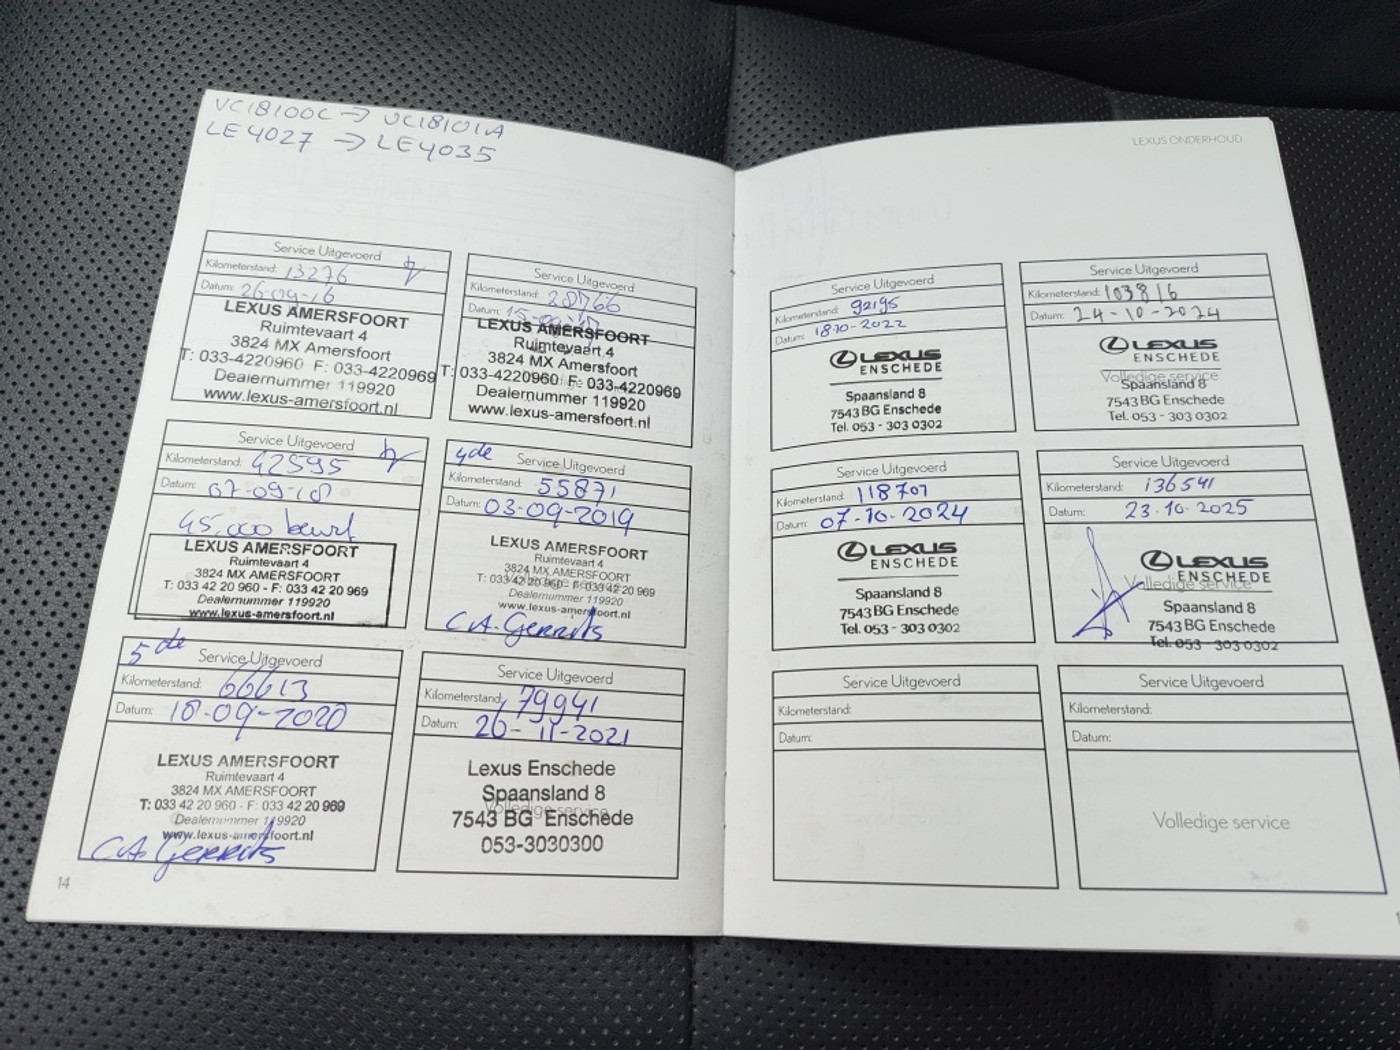 VC18100C → VC18101A
LE4027 → LE4035
Service Uitgevoerd
Kilometerstand: 13276
Datum: 26-09-16
LEXUS AMERSFOORT
Ruimtevaart 4
3824 MX Amersfoort
T: 033-4220960 F: 033-4220969
Dealernummer 119920
www.lexus-amersfoort.nl
Service Uitgevoerd
Kilometerstand: 28766
Datum:
LEXUS AMERSFOORT
Ruimtevaart 4
3824 MX Amersfoort
T: 033-4220960 F: 033-4220969
Dealernummer 119920
www.lexus-amersfoort.nl
Service Uitgevoerd
Kilometerstand: 42595
Datum: 07-09-18
45.000 beurt
LEXUS AMERSFOORT
Ruimtevaart 4
3824 MX AMERSFOORT
T: 033 42 20 960 - F: 033 42 20 969
Dealernummer 119920
www.lexus-amersfoort.nl
4de Service Uitgevoerd
Kilometerstand: 55871
Datum: 03-09-2019
LEXUS AMERSFOORT
Ruimtevaart 4
3824 MX AMERSFOORT
T: 033 42 20 960 - F: 033 42 20 969
Dealernummer 119920
www.lexus-amersfoort.nl
C.A. Gerrits
5de Service Uitgevoerd
Kilometerstand: 66613
Datum: 18-09-2020
LEXUS AMERSFOORT
Ruimtevaart 4
3824 MX AMERSFOORT
T: 033 42 20 960 - F: 033 42 20 969
Dealernummer 119920
www.lexus-amersfoort.nl
C.A. Gerrits
Service Uitgevoerd
Kilometerstand: 79941
Datum: 26-11-2021
Lexus Enschede
Spaansland 8
Volledige service
7543 BG Enschede
053-3030300
14
LEXUS ONDERHOUD
Service Uitgevoerd
Kilometerstand: 92195
Datum: 18-10-2022
LEXUS
ENSCHEDE
Spaansland 8
7543 BG Enschede
Tel. 053 - 303 0302
Service Uitgevoerd
Kilometerstand: 103816
Datum: 24-10-2024
LEXUS
ENSCHEDE
Volledige service
Spaansland 8
7543 BG Enschede
Tel. 053 - 303 0302
Service Uitgevoerd
Kilometerstand: 118707
Datum: 07-10-2024
LEXUS
ENSCHEDE
Spaansland 8
7543 BG Enschede
Tel. 053 - 303 0302
Service Uitgevoerd
Kilometerstand: 136541
Datum: 23-10-2025
LEXUS
ENSCHEDE
Volledige service
Spaansland 8
7543 BG Enschede
Tel. 053 - 303 0302
Service Uitgevoerd
Kilometerstand:
Datum:
Service Uitgevoerd
Kilometerstand:
Datum:
Volledige service